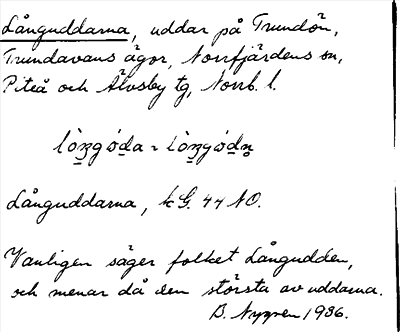 Långuddarna, uddar på Trundön,
Trundavans ägor, Norrfjärdens sn,
Piteå och Älvsby tg, Norrb. l.
Långuddarna, kG. 44 NO.
Vanligen säger folket Långudden,
och menar då den största av uddarna.
B. Nygren 1936.